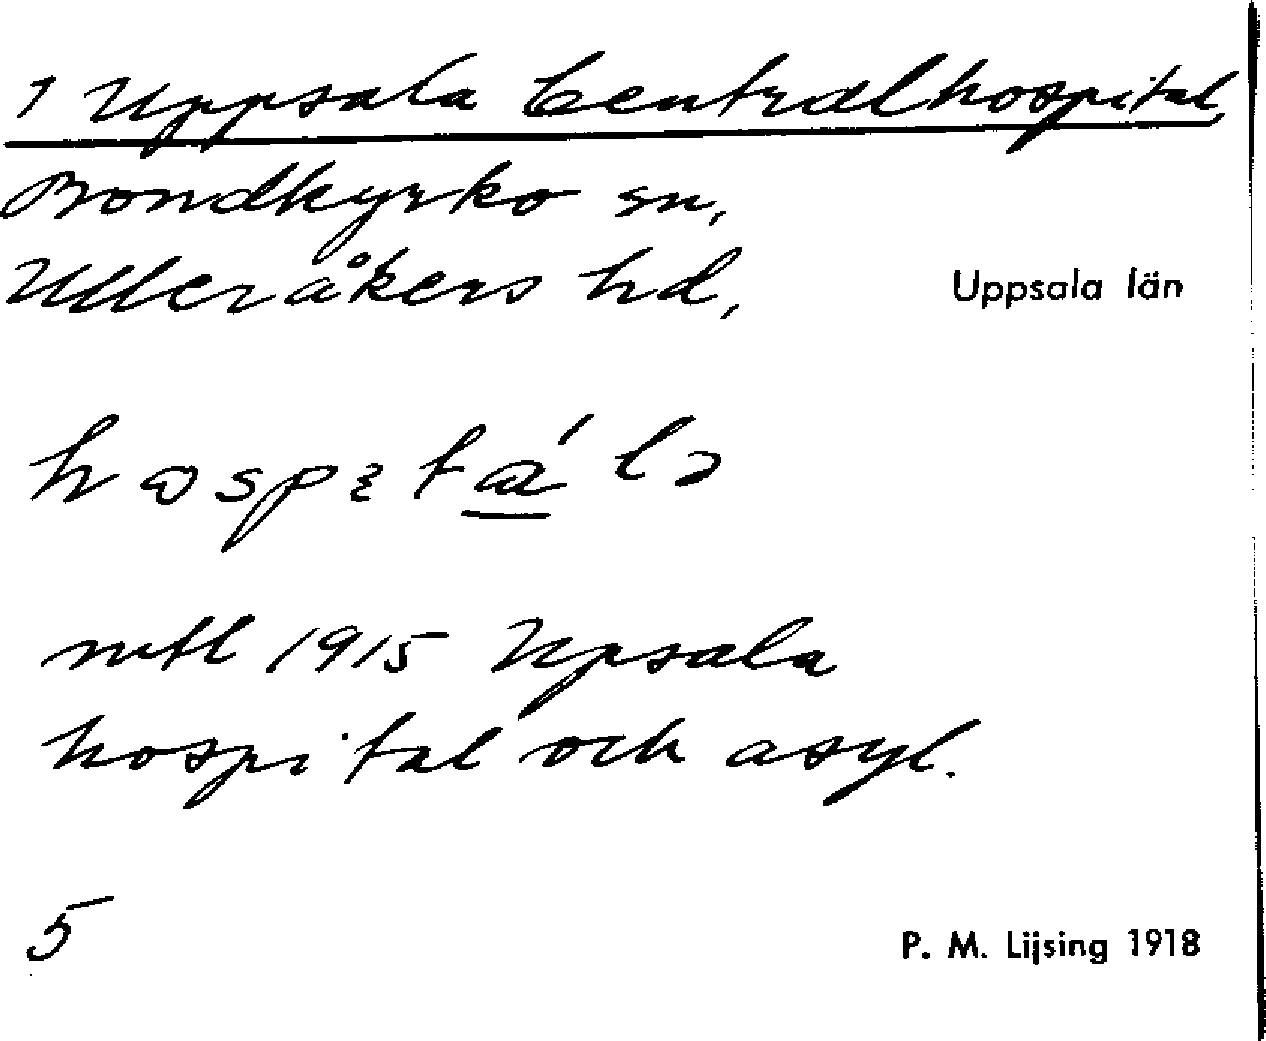 1 Uppsala Centralhospital,
Bondkyrko sn,
Ulleråkers hd, Uppsala län
mtl 1915 Upsala
hospital och asyl.
5
P. M. Lijsing 1918